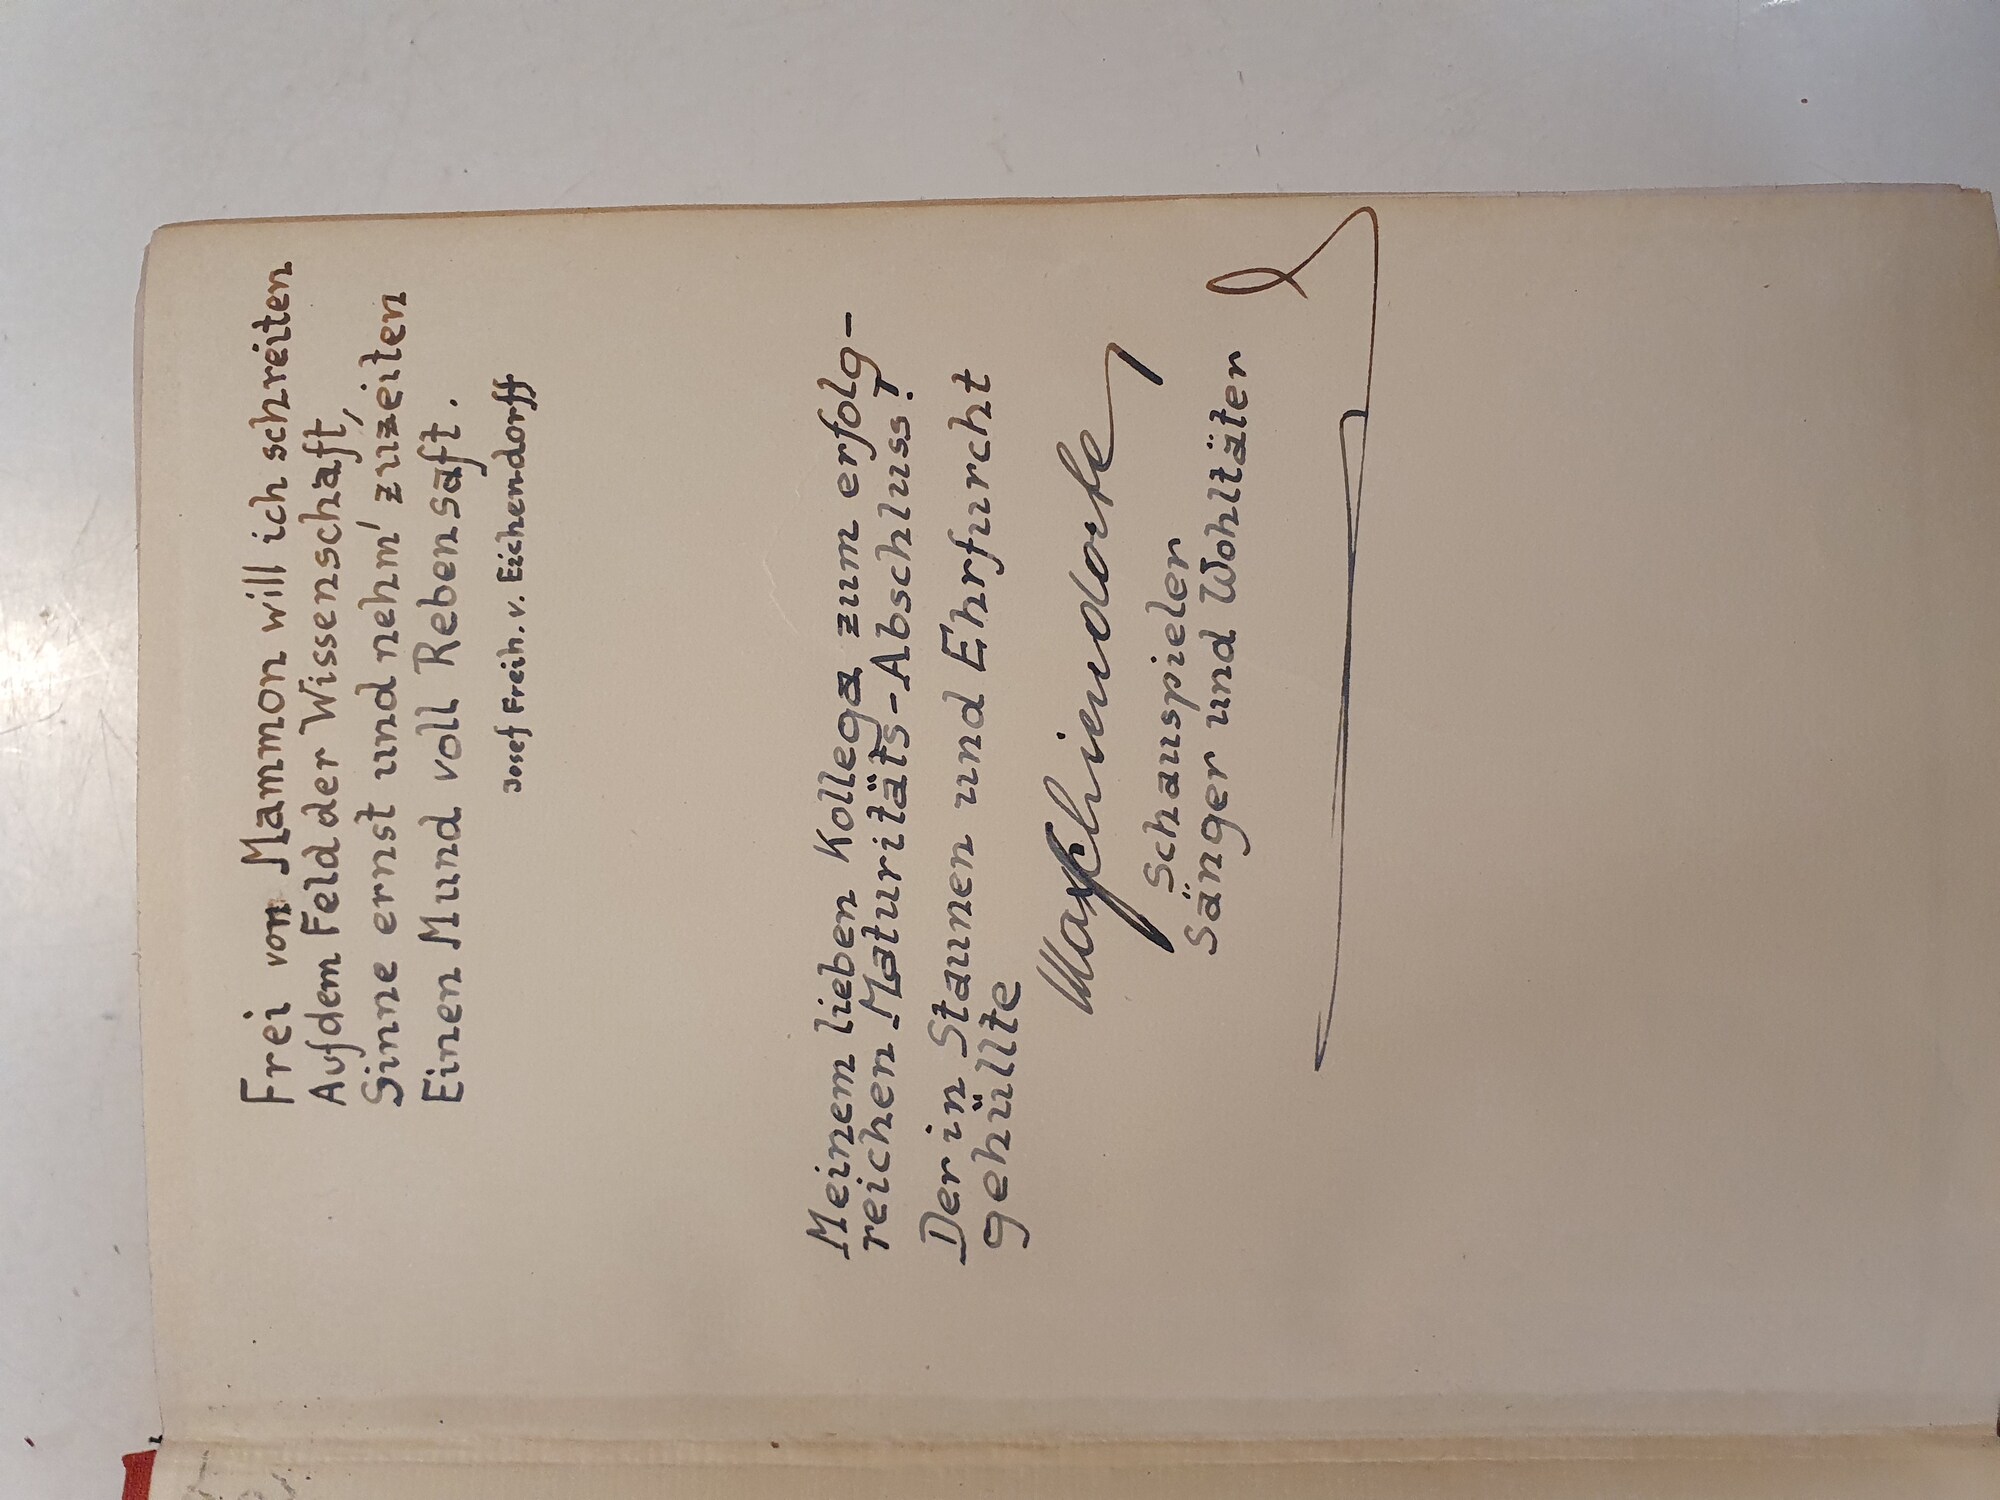 Frei von Mammon will ich schreiten
Auf dem Feld der Wissenschaft,
Sinne ernst und nehm' zuzeiten
Einen Mund voll Rebensaft.
Josef Freih. v. Eichendorff
Meinem lieben Kollega zum erfolg-
reichen Maturitäts-Abschluss!
Der in Staunen und Ehrfurcht
gehüllte
Max
Schauspieler
Sänger und Wohltäter